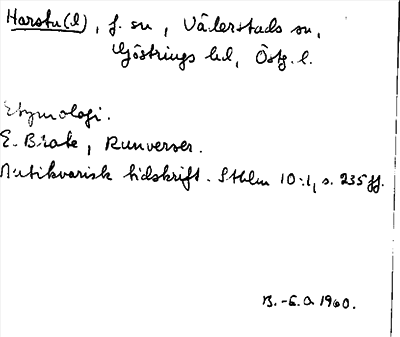 Harstu(l), f. sn, Väderstads sn,
Göstrings hd, Östg. l.
Etymologi.
E. Brate, Runverser.
Antikvarisk tidskrift. Sthlm 10:1, s. 235 ff.
B.-E. O. 1960.